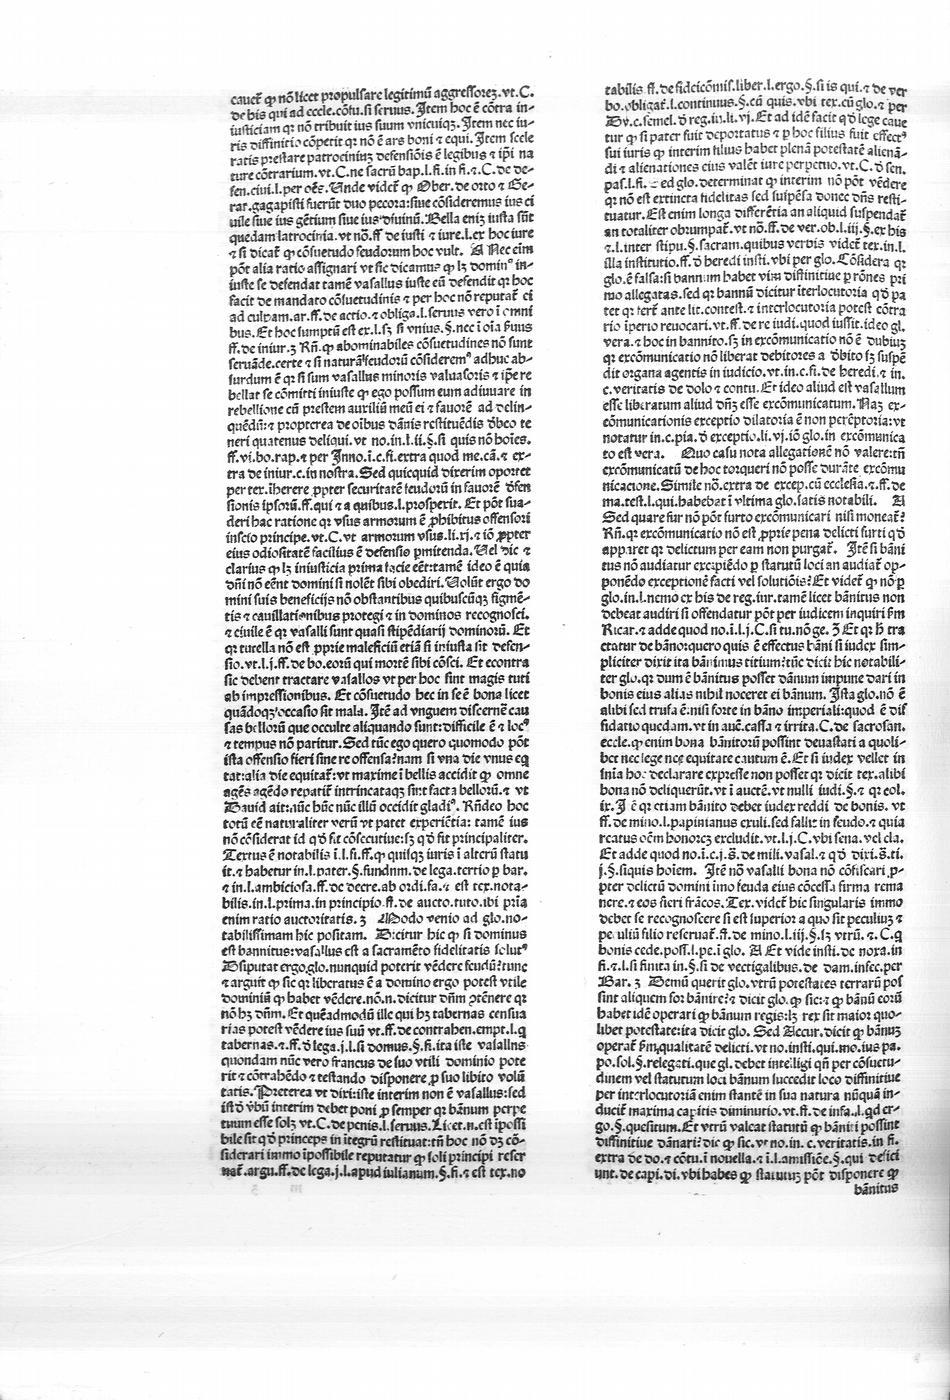 cauet̃ ꝙ nõ licet propulsare legitimũ aggressorez.vt.C.
de his qui ad eccle.cõfu.si seruus. Item hoc ē cõtra in-
iusticiam qꝛ nõ tribuit ius suum vnicuiqz. Item nec iu-
ris diffinitio cõpetit qꝛ nõ ē ars boni ⁊ equi. Item scele
ratis prestare patrocinium defensiõis ē legibus ⁊ ip̄i na
ture cõtrarium.vt.C.ne sacrũ bap.l.fi.in fi.⁊.C.de de-
sen.ciui.l.per oẽs. Unde videt̃ ꝙ Ober.de orto ⁊ Ge-
rar.gagapisti fuerũt duo pecora:siue cõsideremus ius ci
uile siue ius gẽtium siue ius diuinũ. Bella eniz iusta sũt
quedam latrocinia.vt nõ.ff de iusti ⁊ iure.l.ex hoc iure
⁊ si dicat̃ ꝙ cõsuetudo feudorum hoc vult. A Nec eim
põt alia ratio assignari vt sic dicamus ꝙ lz dominꝰ in-
iuste se defendat tamē vasallus iuste eũ defendit qꝛ hoc
facit de mandato cõsuetudinis ⁊ per hoc nõ reputat̃ ei
ad culpam.ar.ff.de actio.⁊ obliga.l.seruus vero ī omni
bus. Et hoc sumptũ est ex.l.sz si vnius.§.nec ī oīa ẜuus
ff.de iniur.3 Rñ.ꝙ abominabiles cõsuetudines nõ sunt
seruãde.certe ⁊ si naturã feudorũ cõsideremꝰ adhuc ab-
surdum ē qꝛ si sum vasallus minoris valuasoris ⁊ ip̄e re
bellat se cõmitti iniuste ꝙ ego possum eum adiuuare in
rebellione cũ prestem auxiliũ meũ ei ⁊ fauorē ad delin-
quẽdũ:⁊ propterea de oĩbus dãnis restituẽdis ðbeo te
neri quatenus deliqui.vt no.in.l.ii.§.si quis nõ hoīes.
ff.vi.bo.rap.⁊ per Inno.ī.c.fi.extra quod me.cã.⁊ ex-
tra de iniur.c.in nostra. Sed quicquid dixerim oportet
per tex.īherere ꝓpter securitatē feudorũ in fauorē ðfen
sionis ipsorũ.ff.qui ⁊ a quibus.l.prospexit. Et põt sua-
deri hac ratione qꝛ vsus armorum ē ꝓhibitus offensori
inscio principe.vt.C.vt armorum vsus.li.xj.⁊ iõ ꝓpter
eius odiositatē facilius ē defensio pmitenda. Uel dic ⁊
clarius ꝙ lz iniusticia prima facie eẽt:tamē ideo ē quia
dñi nõ eẽnt domini si nolẽt sibi obediri. Uolũt ergo do
mini suis beneficijs nõ obstantibus quibuscũqz sigmē-
tis ⁊ cauillationibus protegi ⁊ in dominos recognosci.
⁊ ciuile ē qꝛ vasalli sunt quasi stipẽdiarij dominorũ. Et
qꝛ turella nõ est ꝓprie maleficiũ etiã si iniusta sit defen-
sio.vt.l.j.ff.de bo.eorũ qui mortē sibi cõsci. Et econtra
sic debent tractare vasallos vt per hoc sint magis tuti
ab impressionibus. Et cõsuetudo hec in se ē bona licet
quãdoqz occasio sit mala. Itē ad vnguem discernē cau
sas bellorũ que occulte aliquando sunt:difficile ē ⁊ locꝰ
⁊ tempus nõ paritur. Sed tũc ego quero quomodo põt
ista offensio fieri sine re offensa?nam si vna die vnus eq
tat:alia die equitat̃:vt maxime ī bellis accidit ꝙ omne
agēs agēdo repatit̃ intrincataqz sint facta bellorũ.⁊ vt
Dauid ait:nũc hũc nũc illũ occidit gladiꝰ. Rñdeo hoc
totũ eē naturaliter verũ vt patet experiẽtia: tamē ius
nõ cõsiderat id qð fit cõsecutiue:sz qð fit principaliter.
Textus ē notabilis ī.l.si.ff.ꝙ quilqz iuris ī alterũ statu
it.⁊ habetur in.l.pater.§.fundum.de lega.tertio p bar.
⁊ in.l.ambiciosa.ff.de decre.ab ordi.fa.⁊ est tex.nota-
bilis.in.l.prima.in principio.ff.de aucto.tuto.ibi pria
enim ratio auctoritatis.3 Modo venio ad glo.no-
tabilissimam hic positam. Dicitur hic ꝙ si dominus
est bannitus:vasallus est a sacramẽto fidelitatis solutꝰ
Disputat ergo glo.nunquid poterit vẽdere feudũ?tunc
⁊ arguit ꝙ sic qꝛ liberatus ē a domino ergo potest vtile
dominiũ ꝙ habet vẽdere.nõ.n.dicitur dñm ꝯtēnere qꝛ
nõ hz dñm. Et quẽadmodũ ille qui hz tabernas censua
rias potest vẽdere ius suũ vt.ff.de contrahen.empt.l.q
tabernas.⁊.ff.ð lega.j.l.si domus.§.fi.ita iste vasallus
quondam nũc vero francus de suo vtili dominio pote
rit ⁊ cõtrahẽdo ⁊ testando disponere ꝓ suo libito volũ
tatis. Preterea vt dixi:iste interim non ē vasallus:sed
istð vbũ interim debet poni ꝓ semper qꝛ bãnum perpe
tuum esse solz vt.C.de penis.l.seruus. Licet.n.est īpossi
bile sit qð princeps in itegrũ restituat:tñ hoc nõ dz cõ-
siderari immo īpossibile reputatur ꝙ soli principi reser
uat̃.argu.ff.de lega.j.l.apud iulianum.§.fi.⁊ est tex.no
tabilis.ff.de fideicõmis.liber.l.ergo.§.si is qui.⁊ de ver
bo.obligat̃.l.continuus.§.cũ quis.vbi tex.cũ glo.⁊ per
Dy.c.semel.ð reg.in.li.vj. Et ad idē facit qð lege caue
tur ꝙ si pater fuit deportatus ⁊ p hoc filius fuit effectꝰ
sui iuris ꝙ interim filius habet plenã potestatē alienã-
di ⁊ alienationes eius valēt iure perpetuo.vt.C.ð sen.
pas.l.fi. Sed glo.determinat ꝙ interim nõ põt vẽdere
qꝛ nõ est extincta fidelitas sed suspẽsa donec dñs resti-
tuatur. Est enim longa differẽtia an aliquid suspendat̃
an totaliter obrumpat̃.vt nõ.ff.de ver.ob.l.iij.§.ex his
⁊.l.inter stipu.§.sacram.quibus verbis videt̃ tex.in.l.
illa institutio.ff.ð heredi insti.vbi per glo. Cõsidera qꝛ
glo.ē falsa:si bannum habet vim distinitiue p rõnes pri
mo allegatas.sed qꝛ bannũ dicitur īterlocutoria qð pa
tet qꝛ fert̃ ante lit.contest.⁊ interlocutoria potest cõtra
rio īperio reuocari.vt.ff.de re iudi.quod iussit.ideo gl.
vera.⁊ hoc in bannito.sz in excõmunicatio nõ ē dubiuz
qꝛ excõmunicatio nõ liberat debitores a ðbito sz suspē
dit organa agentis in iudicio.vt.in.c.fi.de heredi.⁊ in.
c.veritatis de dolo ⁊ contu. Et ideo aliud est vasallum
esse liberatum aliud dñz esse excõmunicatum. Naz ex-
cõmunicationis exceptio dilatoria ē non perẽptoria:vt
notatur in.c.pia.ð exceptio.li.vj.iõ glo.in excõmunica
to est vera. Quo casu nota allegationē nõ valere:tñ
excõmunicatũ de hoc torqueri nõ posse durãte excõmu
nicatione. Simile nõ.extra de excep.cũ ecclesia.⁊.ff.de
ma.test.l.qui.habebat ī vltima glo.satis notabili. A
Sed quare fur nõ põt furto excõmunicari nisi moneat̃?
Rñ.qꝛ excõmunicatio nõ est ꝓprie pena delicti furti qð
apparet qꝛ delictum per eam non purgat̃. Itē si bãni
tus nõ audiatur excipiẽdo p statutũ loci an audiat̃ op-
ponẽdo exceptionē facti vel solutiõis? Et videt̃ ꝙ nõ p
glo.in.l.nemo ex his de reg.iur.tamē licet bãnitus non
debeat audiri si offendatur põt per iudicem inquiri ẜm
Ricar.⁊ adde quod no.ī.l.j.C.si tu.nõ ge. 3 Et qꝛ h̄ tra
ctatur de bãno:quero quis ē effectus bãni si iudex sim-
pliciter dixit ita bãnimus titium?tũc dicit hic notabili-
ter glo.qꝛ dum ē bãnitus posset dãnum impune dari in
bonis eius alias nihil noceret ei bãnum. Ista glo.nõ ē
alibi sed trufa ē:nisi forte in bãno imperiali:quod ē dif
fidatio quedam.vt in auē.cassa ⁊ irrita.C.de sacrosan.
eccle.ꝙ enim bona bãnitorũ possint deuastari a quoli-
bet nec lege nec equitate cautum ē. Et si iudex vellet in
sn̄ia hoc declarare expresse non posset qꝛ dicit tex.alibi
bona nõ deliquerũt.vt ī auctē.vt nulli iudi.§.⁊ qꝛ eol.
ix. I ē qꝛ etiam bãnito debet iudex reddi de bonis.vt
ff.de mino.l.papinianus exuli.sed fallit in feudo.⁊ quia
reatus oēm honorez excludit.vt.l.j.C.vbi sena.vel cla.
Et adde quod no.ī.c.j.§.de mili.vasal.⁊ qð dixi.§.ti.
j.§.siquis hoiem. Itē nõ vasalli bona nõ cõfiscari ꝓ-
pter delictũ domini imo feuda eius cõcessa firma rema
nere.⁊ eos fieri frãcos. Tex.videt̃ hic singularis immo
debet se recognoscere si est superior a quo sit peculiuz ⁊
peculiũ filio reseruat̃.ff.de mino.l.iij.§.sz vtrũ.⁊.C.q
bonis cede.poss.l.pe.ī glo. A Et vide insti.de noxa.in
fi.⁊.l.si finita in.§.si de vectigalibus.de dam.infec.per
Bar. 3 Demũ querit glo.vtrũ potestates terrarũ pos
sint aliquem forbãnire?⁊ dicit glo.ꝙ sic:⁊ ꝙ bãnũ eorũ
habet idē operari ꝙ bãnum regis:lz rex sit maior quo-
libet potestate:ita dicit glo. Sed Accur.dicit ꝙ bãnuz
operat̃ ẜm qualitatē delicti.vt no.insti.qui.mo.ius pa.
po.sol.§.relegati.que gl.debet intelligi qñ per cõsuetu-
dinem vel statutum loci bãnum succedit loco diffinitiue
per interlocutoriã enim stantē in sua natura nũquã in-
ducit̃ maxima capitis diminutio.vt.ff.de infa.l.qd er-
go.§.quesitum. Et vtrũ valeat statutũ ꝙ bãniti possint
diffinitiue dãnari?dic ꝙ sic.vt no.in.c.veritatis.in fi.
extra de do.⁊ cõtu.ī nouella.⁊ ī.l.amissiõe.§.qui defici
unt.de capi.di.vbi habes ꝙ statutuz põt disponere ꝙ
bãnitus